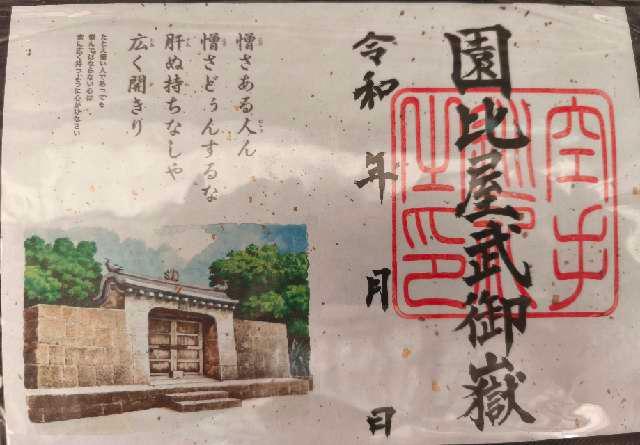 園比屋武御嶽
空手
之印
令和 年 月 日
憎さある人ん
憎さどぅんするな
肝ぬ持ちなしや
広く開きり
たとえ憎い人であっても
憎んではならない心は
常に広く持つように心がけなさい